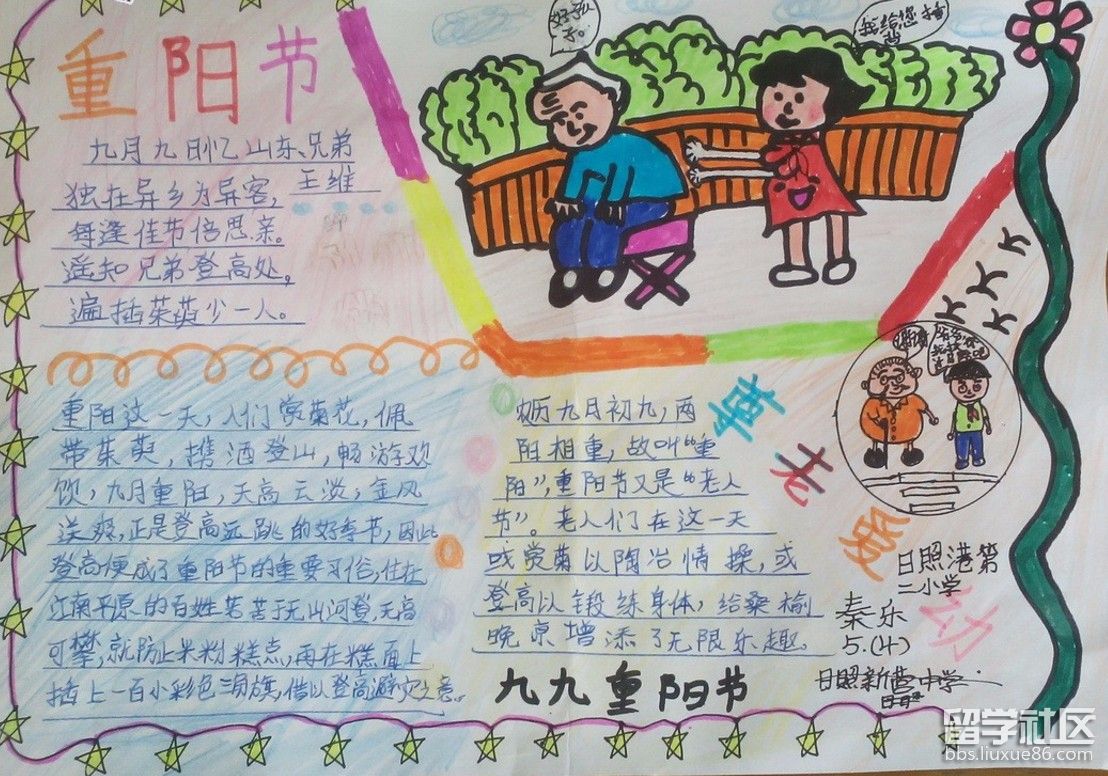 重阳节
九月九日忆山东兄弟
王维
独在异乡为异客,
每逢佳节倍思亲。
遥知兄弟登高处,
遍插茱萸少一人。
好孩子。
我给您捶背
重阳这一天,人们赏菊花,佩
带茱萸,携酒登山,畅游欢
饮,九月重阳,天高云淡,金风
送爽,正是登高远跳的好季节,因此
登高便成了重阳节的重要习俗,住在
江南平原的百姓苦苦于无山河登,无高
可攀,就防止米粉糕点,再在糕面上
插上一百小彩色三角旗,借以登高避灾之意。
九月初九,两
阳相重,故叫“重
阳”,重阳节又是“老人
节”。老人们在这一天
或赏菊以陶冶情操,或
登高以锻练身体,给桑榆
晚京增添了无限乐趣。
九九重阳节
尊老爱幼
谢谢
日照港第
二小学
秦乐
5.(4)
日照新营中学
留学社区
bbs.liuxue86.com